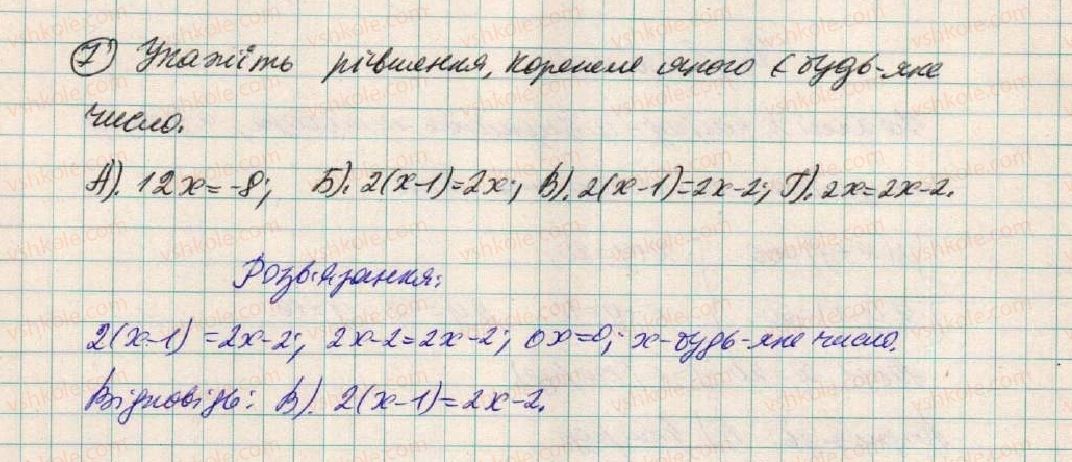 1) Укажіть рівняння, коренем якого є будь-яке
число.
А). 12x = -8; Б). 2(x-1)=2x; В). 2(x-1)=2x-2; Г). 2x=2x-2.
Розв'язання:
2(x-1) = 2x-2; 2x-2=2x-2; 0x=0; x-будь-яке число.
Відповідь: В). 2(x-1)=2x-2.